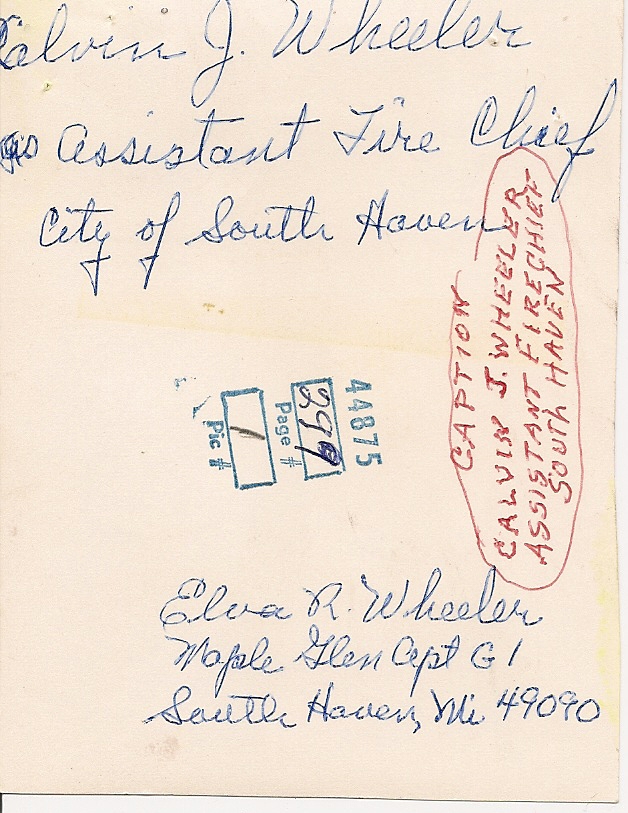 Calvin J. Wheeler
as Assistant Fire Chief
City of South Haven
CAPTION
CALVIN J. WHEELER
ASSISTANT FIRECHIEF
SOUTH HAVEN
44875
Page # 299
Pic # 1
Elva R. Wheeler
Maple Glen Apt G 1
South Haven, Mi 49090